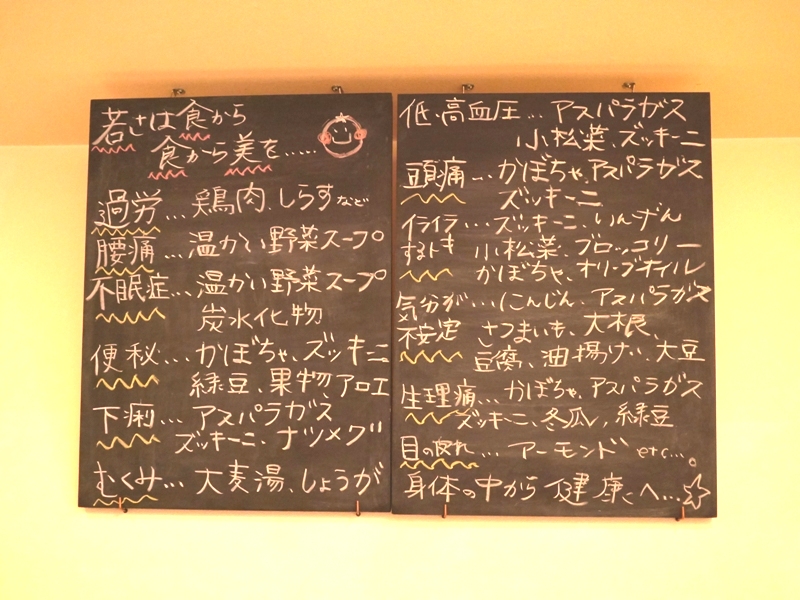 若さは食から
食から美を.....
過労...鶏肉、しらすなど
腰痛...温かい野菜スープ
不眠症...温かい野菜スープ
炭水化物
便秘...かぼちゃ、ズッキーニ
緑豆、果物、アロエ
下痢...アスパラガス
ズッキーニ、ナツメグ
むくみ...大麦湯、しょうが
低・高血圧...アスパラガス
小松菜、ズッキーニ
頭痛...かぼちゃ、アスパラガス
ズッキーニ
イライラ...ズッキーニ、いんげん
するトキ 小松菜、ブロッコリー
かぼちゃ、オリーブオイル
気分が...にんじん、アスパラガス
不安定 さつまいも、大根、
豆腐、油揚げ、大豆
生理痛...かぼちゃ、アスパラガス
ズッキーニ、冬瓜、緑豆
目の疲れ...アーモンド etc...。
身体の中から健康にへ...☆